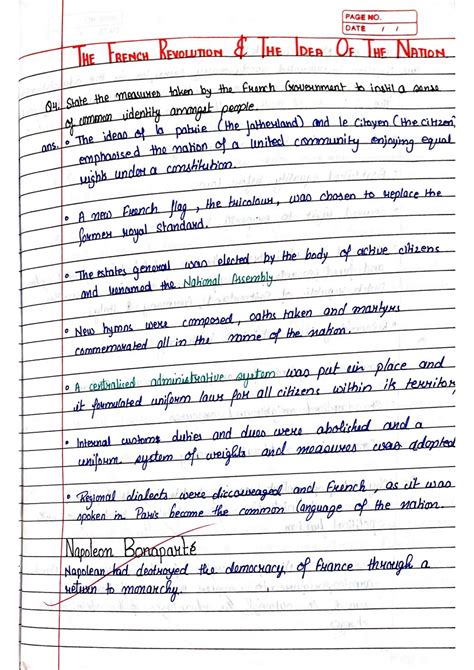 PAGE NO.
DATE / /
THE FRENCH REVOLUTION & THE IDEA OF THE NATION
Q4. State the measures taken by the French Government to instil a sense
of common identity amongst people.
ans. • The ideas of la patrie (the fatherland) and le citoyen (the citizen)
emphasised the nation of a united community enjoying equal
rights under a constitution.
• A new French flag, the tricolour, was chosen to replace the
former royal standard.
• The estates general was elected by the body of active citizens
and renamed the National Assembly
• New hymns were composed, oaths taken and martyrs
commemorated all in the name of the nation.
• A centralised administrative system was put in place and
it formulated uniform laws for all citizens within its territory
• Internal customs duties and dues were abolished and a
uniform system of weights and measures was adopted
• Regional dialects were discouraged and French, as it was
spoken in Paris became the common language of the nation.
Napoleon Bonaparte
Napolean had destroyed the democracy of France through a
return to monarchy.